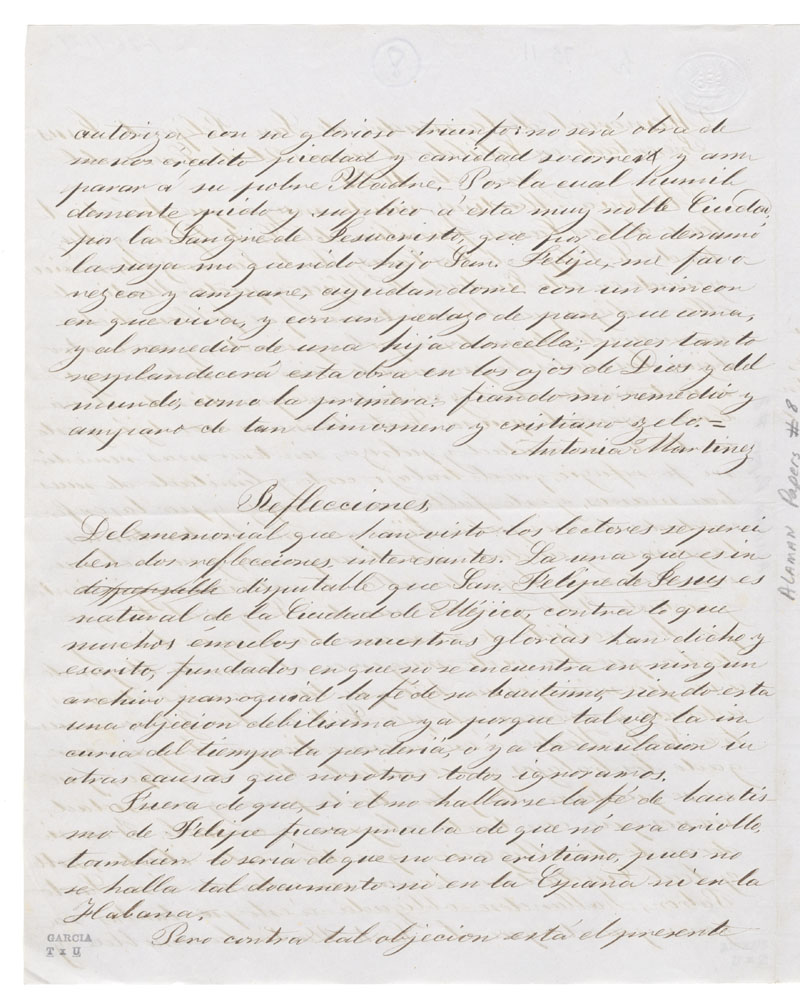 autoriza con su glorioso triunfo: no será obra de
menos crédito piedad y caridad socorrer y am
parar á su pobre Madre. Por la cual humil
demente pido y suplico á esta muy noble Ciudad,
por la Sangre de Jesucristo, que por ella derramó
la suya mi querido hijo San. Felipe, me favo
rezca y ampare, ayudandome con un rincon
en que viva, y con un pedazo de pan que coma,
y al remedio de una hija doncella; pues tanto
resplandecerá esta obra en los ojos de Dios y del
mundo, como la primera: fiando mi remedio y
amparo de tan limosnero y cristiano zelo.=
Antonia Martinez
Reflecciones,
Del memorial que han visto los lectores se perci
ben dos reflecciones, interesantes. La una que es in
dispensable disputable que San. Felipe de Jesus es
natural de la Ciudad de Méjico, contra lo que
muchos emulos de nuestras glorias han dicho y
escrito, fundados en que no se encuentra en ningun
archivo parroquial la fé de su bautismo, siendo esta
una objecion debilisima ya porque tal vez la in
curia del tiempo la perderiá, ó ya la emulacion ú
otras causas que nosotros todos ignoramos.
Fuera de que, si el no hallarse la fé de bautis
mo de Felipe fuera prueba de que nó era criollo,
tambien lo seria de que no era cristiano, pues no
se halla tal documento ni en la España ni en la
Habana.
Pero contra tal objecion está el presente
GARCIA
T x U
ALAMAN Papers #8